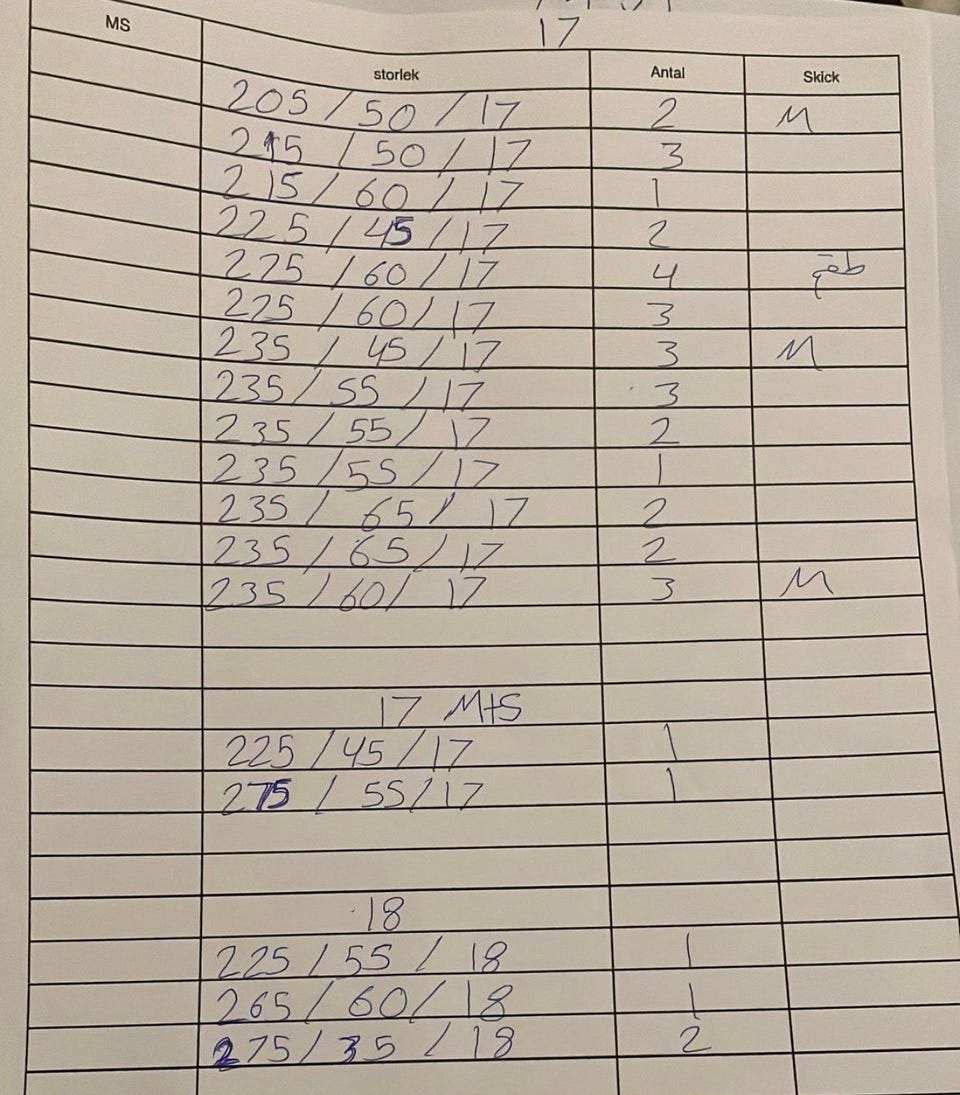 17
MS storlek Antal Skick
205 / 50 / 17 2 M
215 / 50 / 17 3
215 / 60 / 17 1
225 / 45 / 17 2
225 / 60 / 17 4
225 / 60 / 17 3
235 / 45 / 17 3 M
235 / 55 / 17 3
235 / 55 / 17 2
235 / 55 / 17 1
235 / 65 / 17 2
235 / 65 / 17 2
235 / 60 / 17 3 M
17 M+S
225 / 45 / 17 1
275 / 55 / 17 1
18
225 / 55 / 18 1
265 / 60 / 18 1
275 / 35 / 18 2